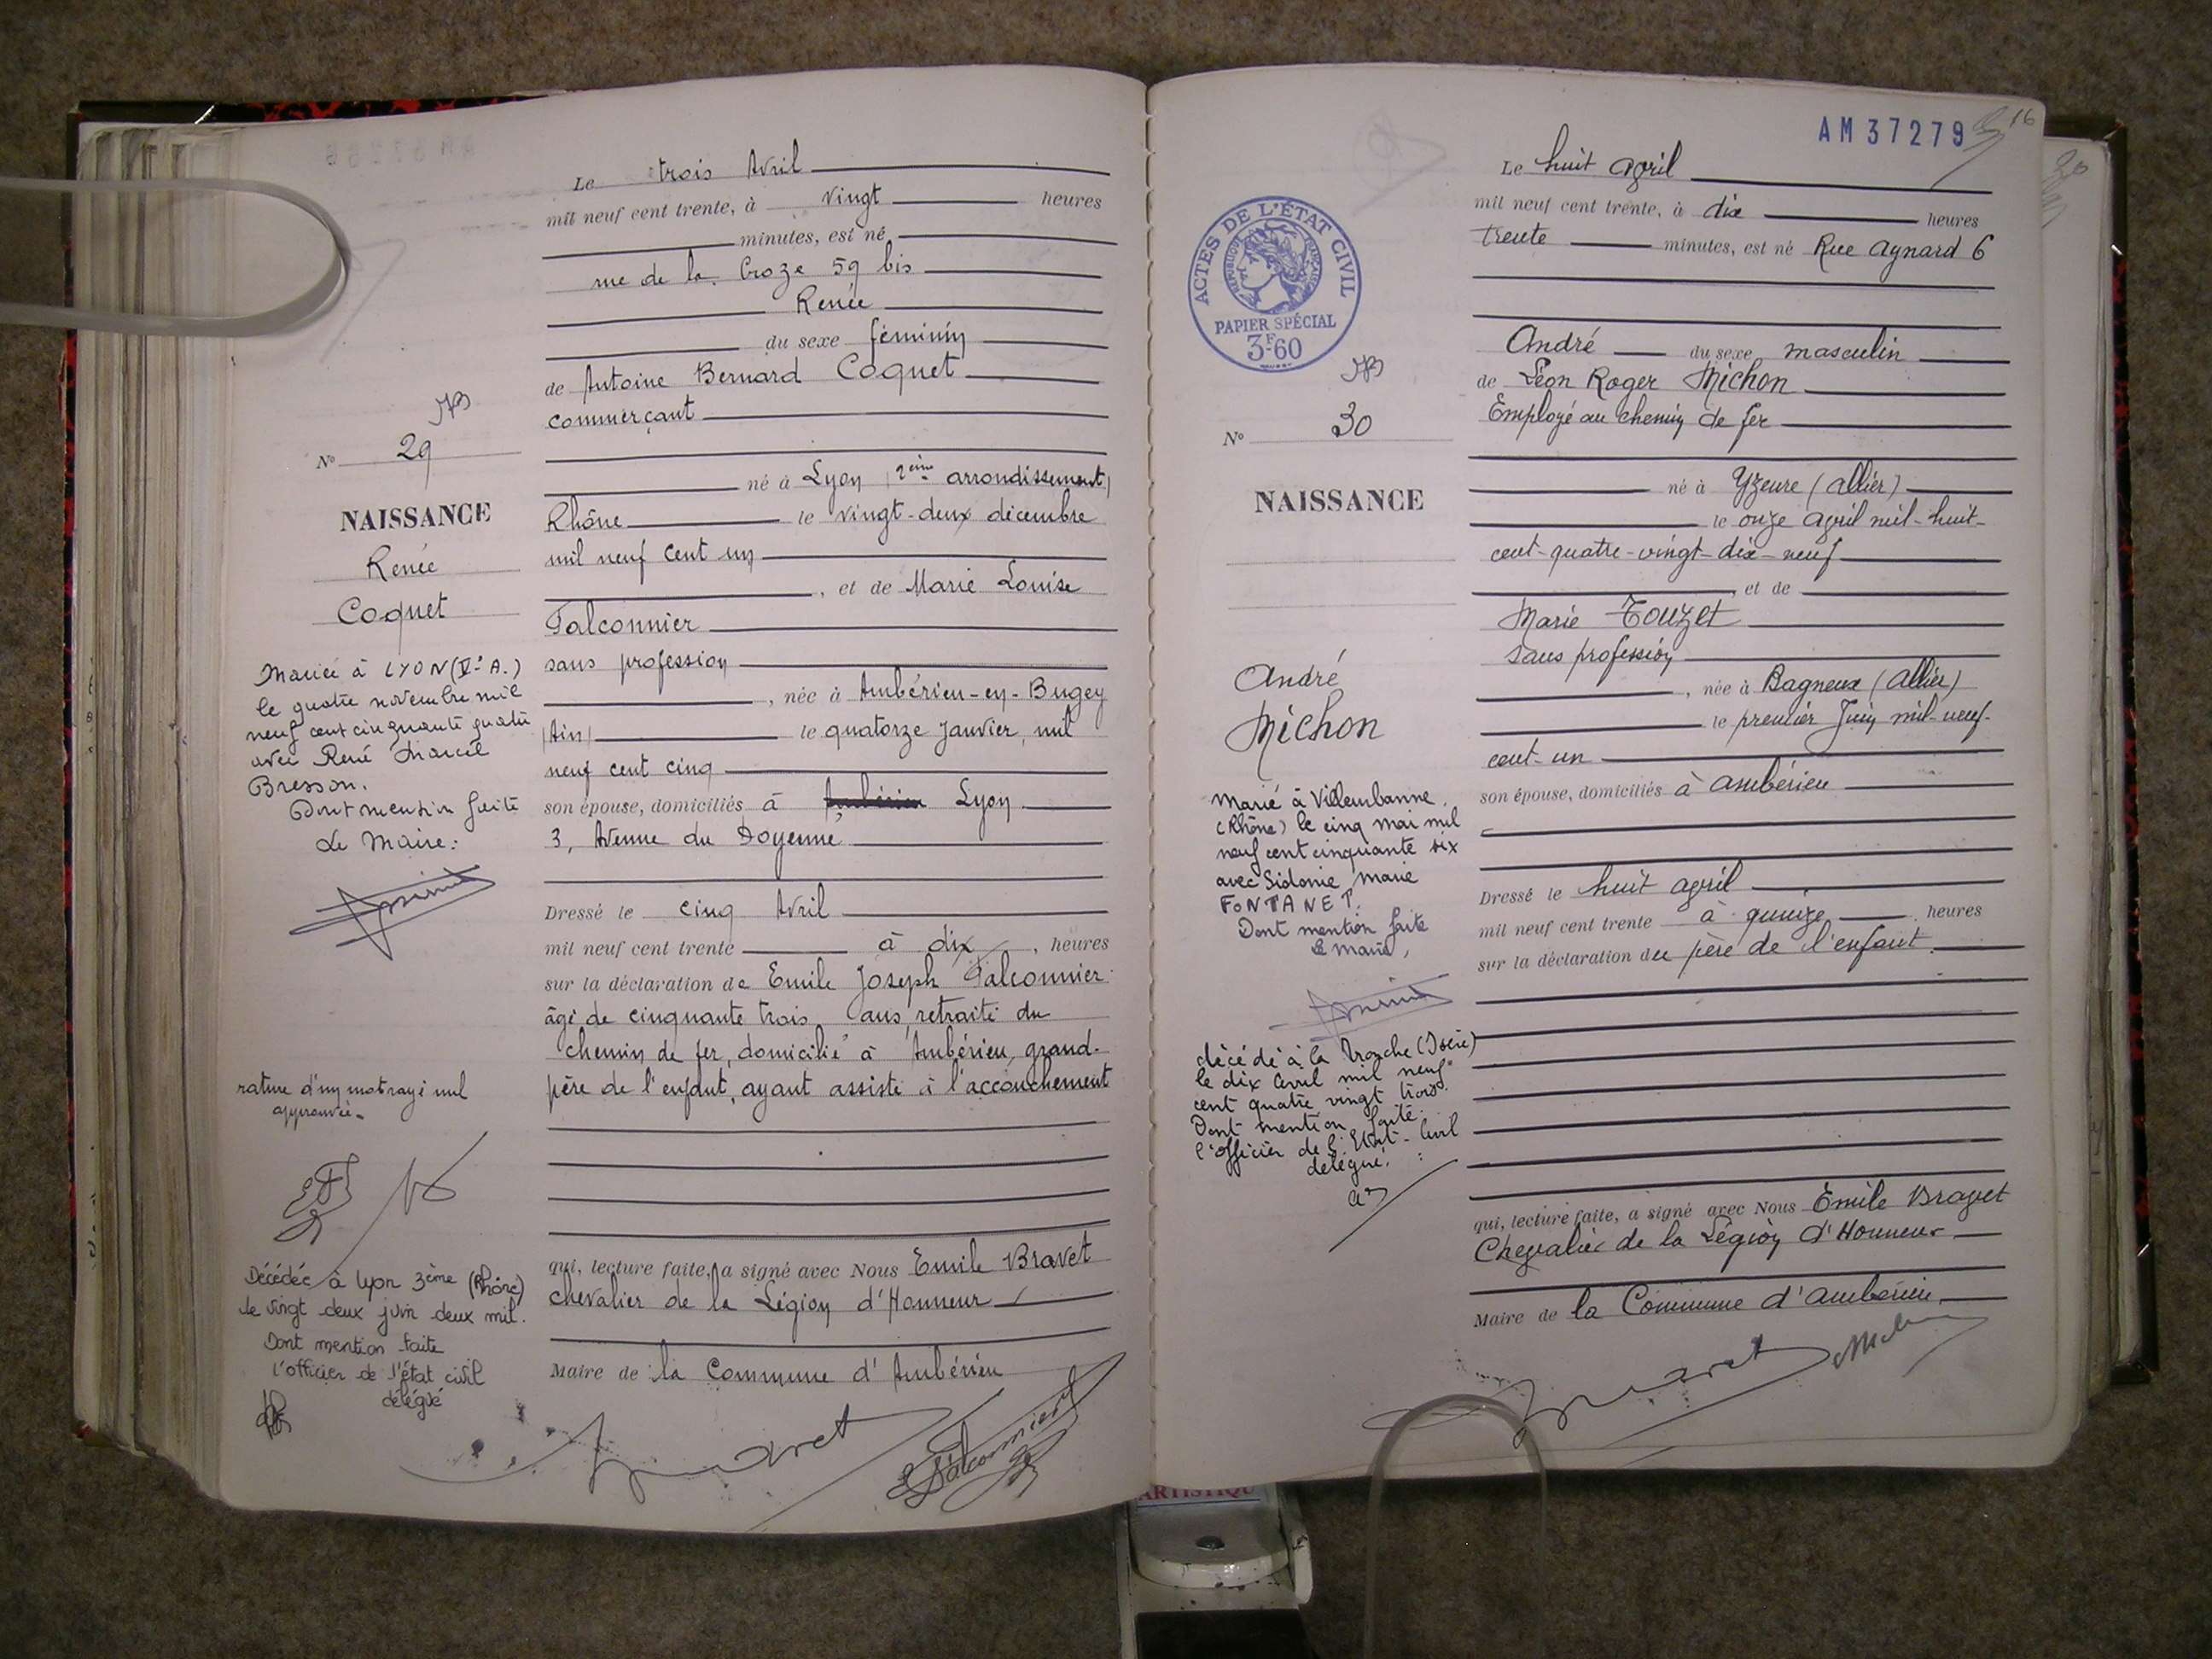 Le trois Avril
mil neuf cent trente, à vingt heures
minutes, est né
rue de la Croze 59 bis
Renée
du sexe féminin
de Antoine Bernard Coquet
commerçant
né à Lyon (2ème arrondissement)
Rhône le vingt-deux décembre
mil neuf cent un
, et de Marie Louise
Falconnier
sans profession
, née à Ambérieu-en-Bugey
(Ain) le quatorze Janvier, mil
neuf cent cinq
son épouse, domiciliés à Ambérieu Lyon
3, Avenue du Doyenné
Dressé le cinq Avril
mil neuf cent trente à dix, heures
sur la déclaration de Emile Joseph Falconnier
âgé de cinquante trois ans, retraité du
chemin de fer, domicilié à Ambérieu, grand-
père de l'enfant, ayant assisté à l'accouchement
qui, lecture faite, a signé avec Nous Emile Bravet
chevalier de la Légion d'Honneur
Maire de la Commune d'Ambérieu
Bravet
E Falconnier
N° 29
NAISSANCE
Renée
Coquet
Mariée à LYON (Ve A.)
le quatre novembre mil
neuf cent cinquante quatre
avec René Marcel
Bresson.
Dont mention faite
Le Maire:
rature d'un mot rayé nul
approuvée.
Décédée à Lyon 3ème (Rhône)
le vingt deux juin deux mil.
Dont mention faite
l'officier de l'état civil
délégué
AM 37279
16
20
ACTES DE L'ÉTAT CIVIL
RÉPUBLIQUE FRANÇAISE
PAPIER SPÉCIAL
3F60
Le huit avril
mil neuf cent trente, à dix heures
trente minutes, est né Rue Aynard 6
André du sexe masculin
de Léon Roger Michon
Employé au chemin de fer
né à Yzeure (Allier)
le onze avril mil-huit-
cent-quatre-vingt-dix-neuf
et de
Marie Touzet
sans profession
, née à Bagneux (Allier)
le premier Juin mil-neuf-
cent-un
son épouse, domiciliés à Ambérieu
Dressé le huit avril
mil neuf cent trente à quinze, heures
sur la déclaration du père de l'enfant
qui, lecture faite, a signé avec Nous Emile Bravet
Chevalier de la Légion d'Honneur
Maire de la Commune d'Ambérieu
Bravet
N° 30
NAISSANCE
André
Michon
Marié à Villeurbanne
(Rhône) le cinq mai mil
neuf cent cinquante six
avec Sidonie Marie
FONTANET.
Dont mention faite
Le Maire,
décédé à la Tronche (Isère)
le dix Avril mil neuf
cent quatre vingt trois.
Dont mention faite.
l'officier de l'Etat-Civil
délégué.
ARTISTIQU